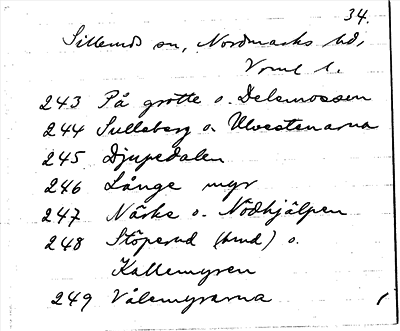 34.
Silleruds sn, Nordmarks hd,
Vrml l.
243 På grotte o. Delemossen
244 Sulleberg o. Ulvestenarna
245. Djupedalen
246 Långe myr
247 Närke o. Nödhjälpen
248 Stöperud (hmd) o.
Kallemyren
249 Vålemyrarna